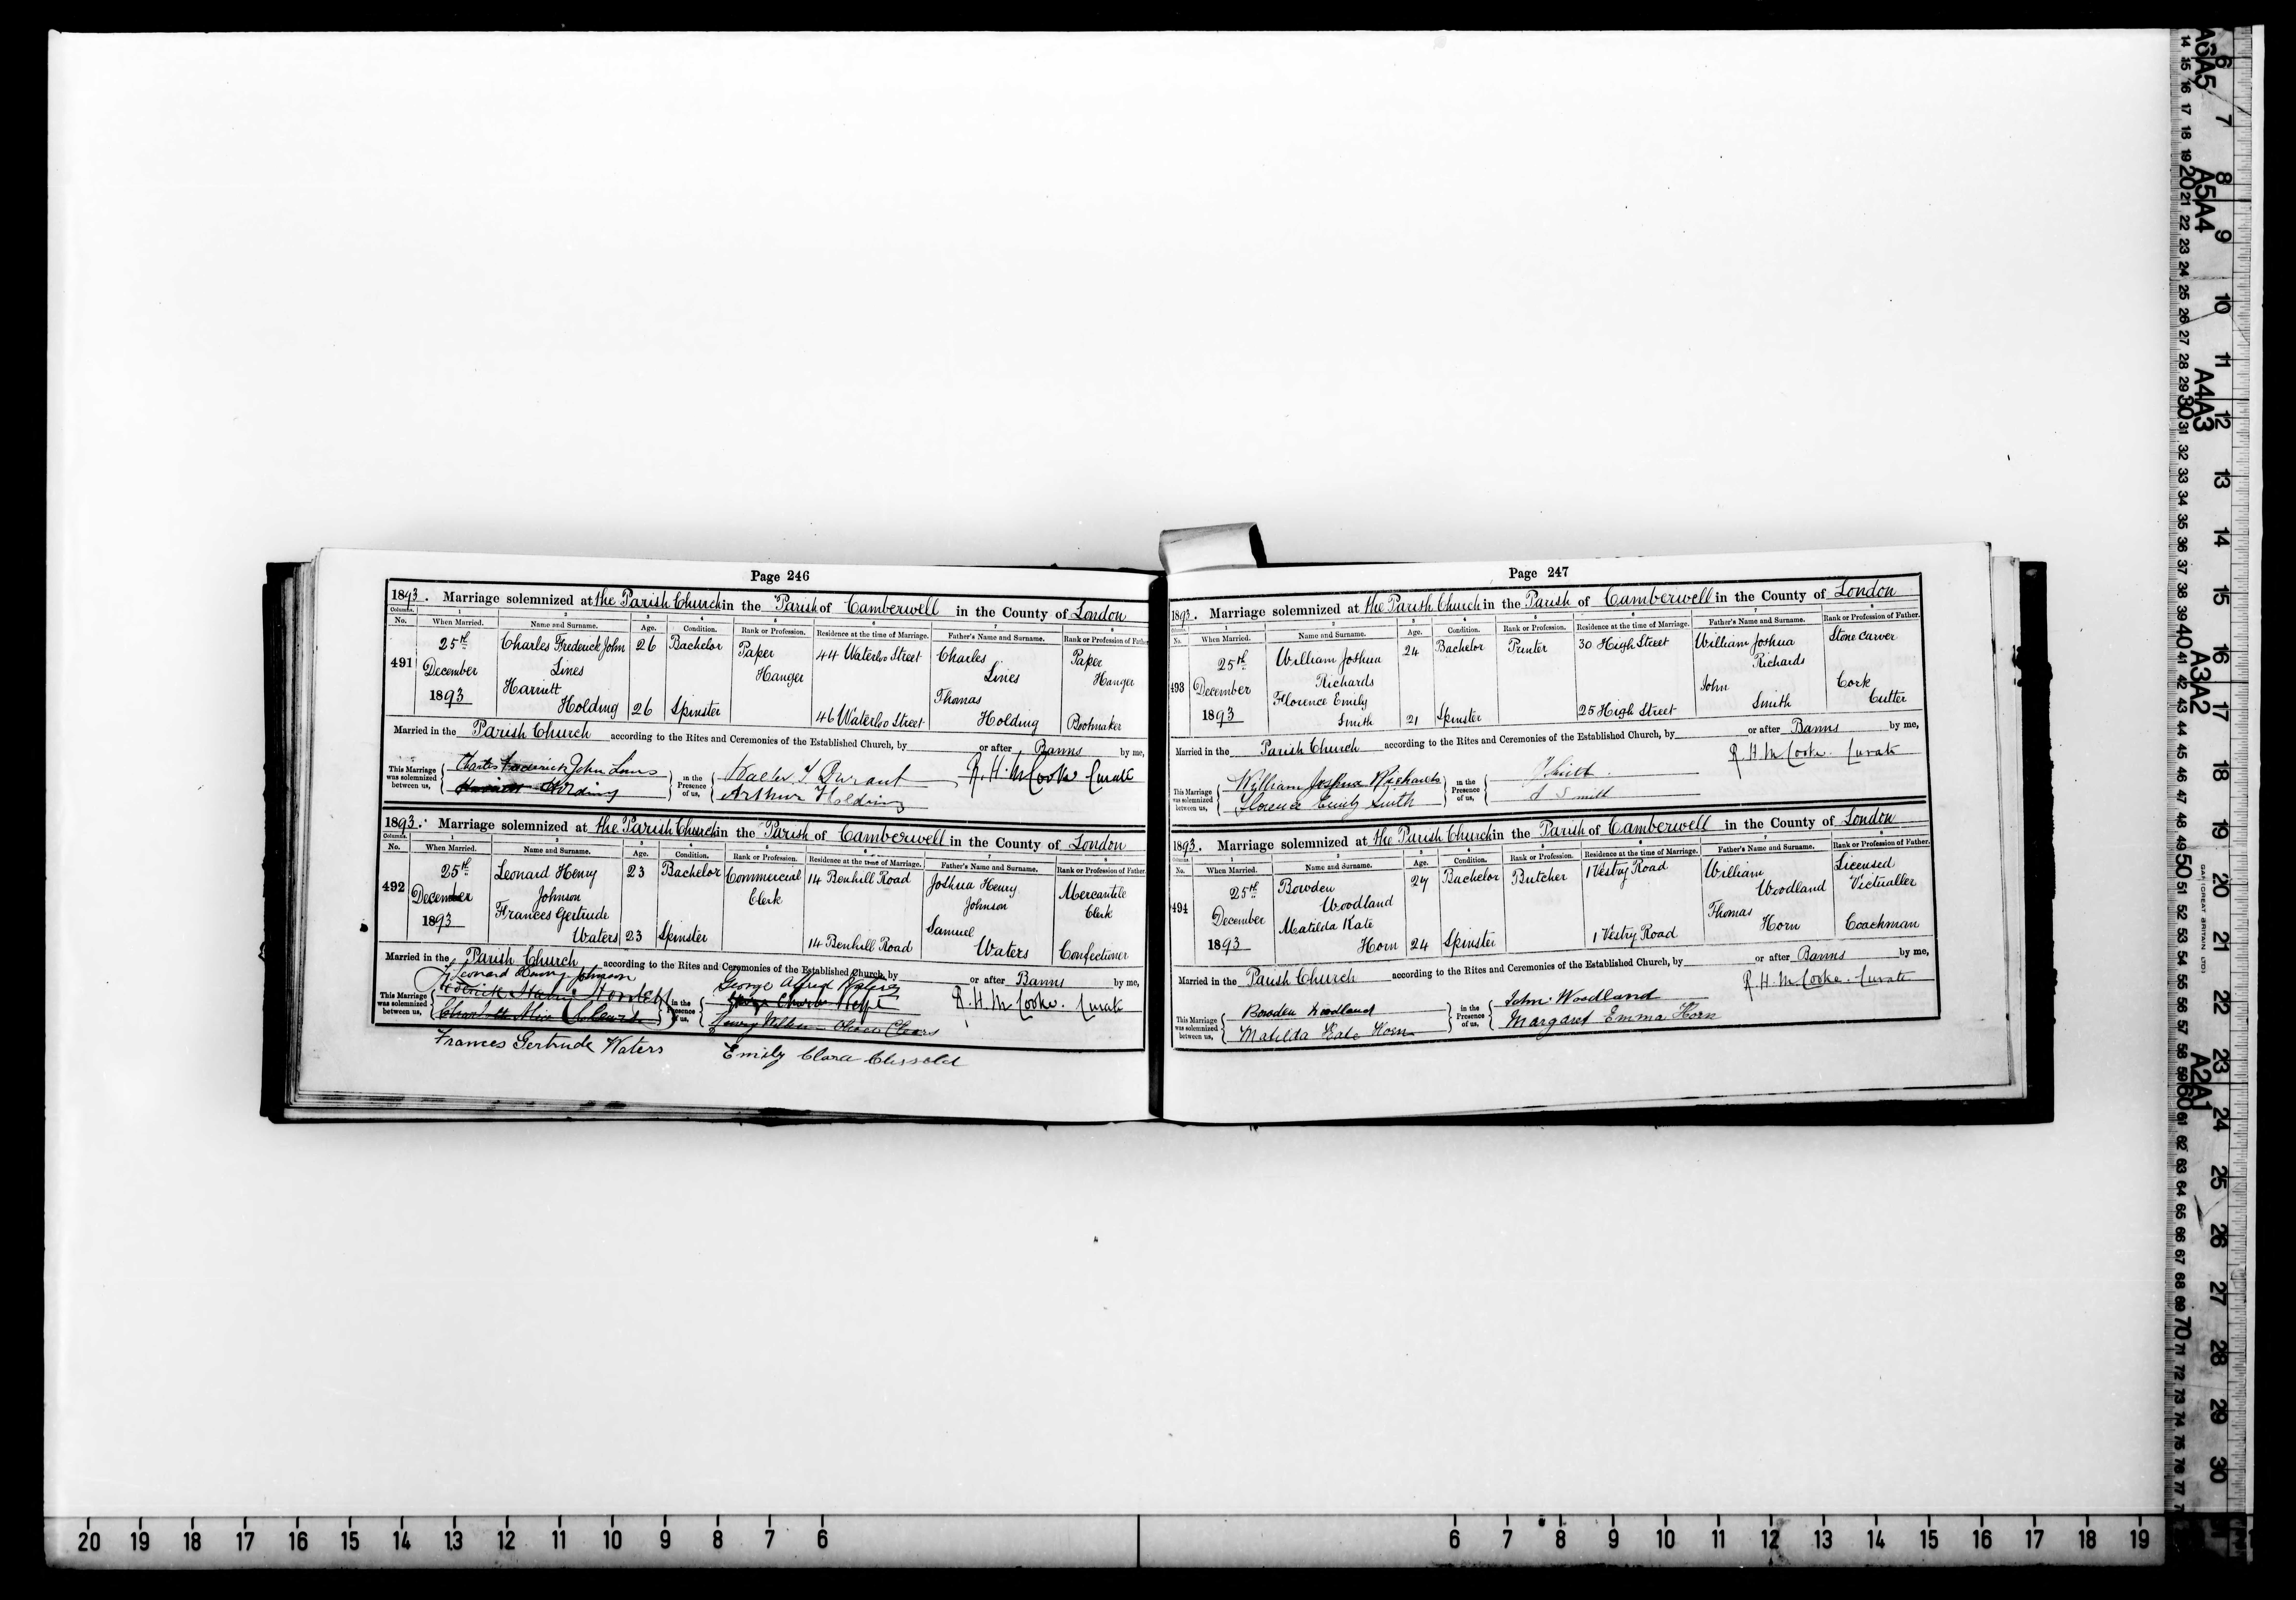 Page 246
1893. Marriage solemnized at the Parish Church in the Parish of Camberwell in the County of London
Columns. 1 2 3 4 5 6 7 8
No. When Married. Name and Surname. Age. Condition. Rank or Profession. Residence at the time of Marriage. Father's Name and Surname. Rank or Profession of Father
491 25th December 1893
Charles Frederick John Lines 26 Bachelor Paper Hanger 44 Waterloo Street Charles Lines Paper Hanger
Harriett Holding 26 Spinster 46 Waterloo Street Thomas Holding Bootmaker
Married in the Parish Church according to the Rites and Ceremonies of the Established Church, by or after Banns by me,
This Marriage was solemnized between us, Charles Frederick John Lines in the Presence of us, Walter Durant R. H. M. Cooke Curate
Harriett Holding Arthur Holding
1893. Marriage solemnized at the Parish Church in the Parish of Camberwell in the County of London
Columns. 1 2 3 4 5 6 7 8
No. When Married. Name and Surname. Age. Condition. Rank or Profession. Residence at the time of Marriage. Father's Name and Surname. Rank or Profession of Father
492 25th December 1893
Leonard Henry Johnson 23 Bachelor Commercial Clerk 14 Benhill Road Joshua Henry Johnson Mercantile Clerk
Frances Gertrude Waters 23 Spinster 14 Benhill Road Samuel Waters Confectioner
Married in the Parish Church according to the Rites and Ceremonies of the Established Church, by or after Banns by me,
Leonard Henry Johnson George Alfred
This Marriage was solemnized between us, in the Presence of us, R. H. M. Cooke. Curate
Frances Gertrude Waters Emily Clara Clissold
Page 247
1893. Marriage solemnized at the Parish Church in the Parish of Camberwell in the County of London
Columns. 1 2 3 4 5 6 7 8
No. When Married. Name and Surname. Age. Condition. Rank or Profession. Residence at the time of Marriage. Father's Name and Surname. Rank or Profession of Father.
493 25th December 1893
William Joshua Richards 24 Bachelor Printer 30 High Street William Joshua Richards Stone Carver
Florence Emily Smith 21 Spinster 25 High Street John Smith Cork Cutter
Married in the Parish Church according to the Rites and Ceremonies of the Established Church, by or after Banns by me,
This Marriage was solemnized between us, William Joshua Richards in the Presence of us, Smith R. H. M. Cooke. Curate
Florence Emily Smith Smith
1893. Marriage solemnized at the Parish Church in the Parish of Camberwell in the County of London
Columns. 1 2 3 4 5 6 7 8
No. When Married. Name and Surname. Age. Condition. Rank or Profession. Residence at the time of Marriage. Father's Name and Surname. Rank or Profession of Father.
494 25th December 1893
Bowden Woodland 27 Bachelor Butcher 1 Vestry Road William Woodland Licensed Victualler
Matilda Kate Horn 24 Spinster 1 Vestry Road Thomas Horn Coachman
Married in the Parish Church according to the Rites and Ceremonies of the Established Church, by or after Banns by me,
This Marriage was solemnized between us, Bowden Woodland in the Presence of us, John Woodland R. H. M. Cooke. Curate
Matilda Kate Horn Margaret Emma Horn
20 19 18 17 16 15 14 13 12 11 10 9 8 7 6 6 7 8 9 10 11 12 13 14 15 16 17 18 19
A6 A5 A5 A4 A4 A3 A3 A2 A2 A1
6 7 8 9 10 11 12 13 14 15 16 17 18 19 20 21 22 23 24 25 26 27 28 29 30